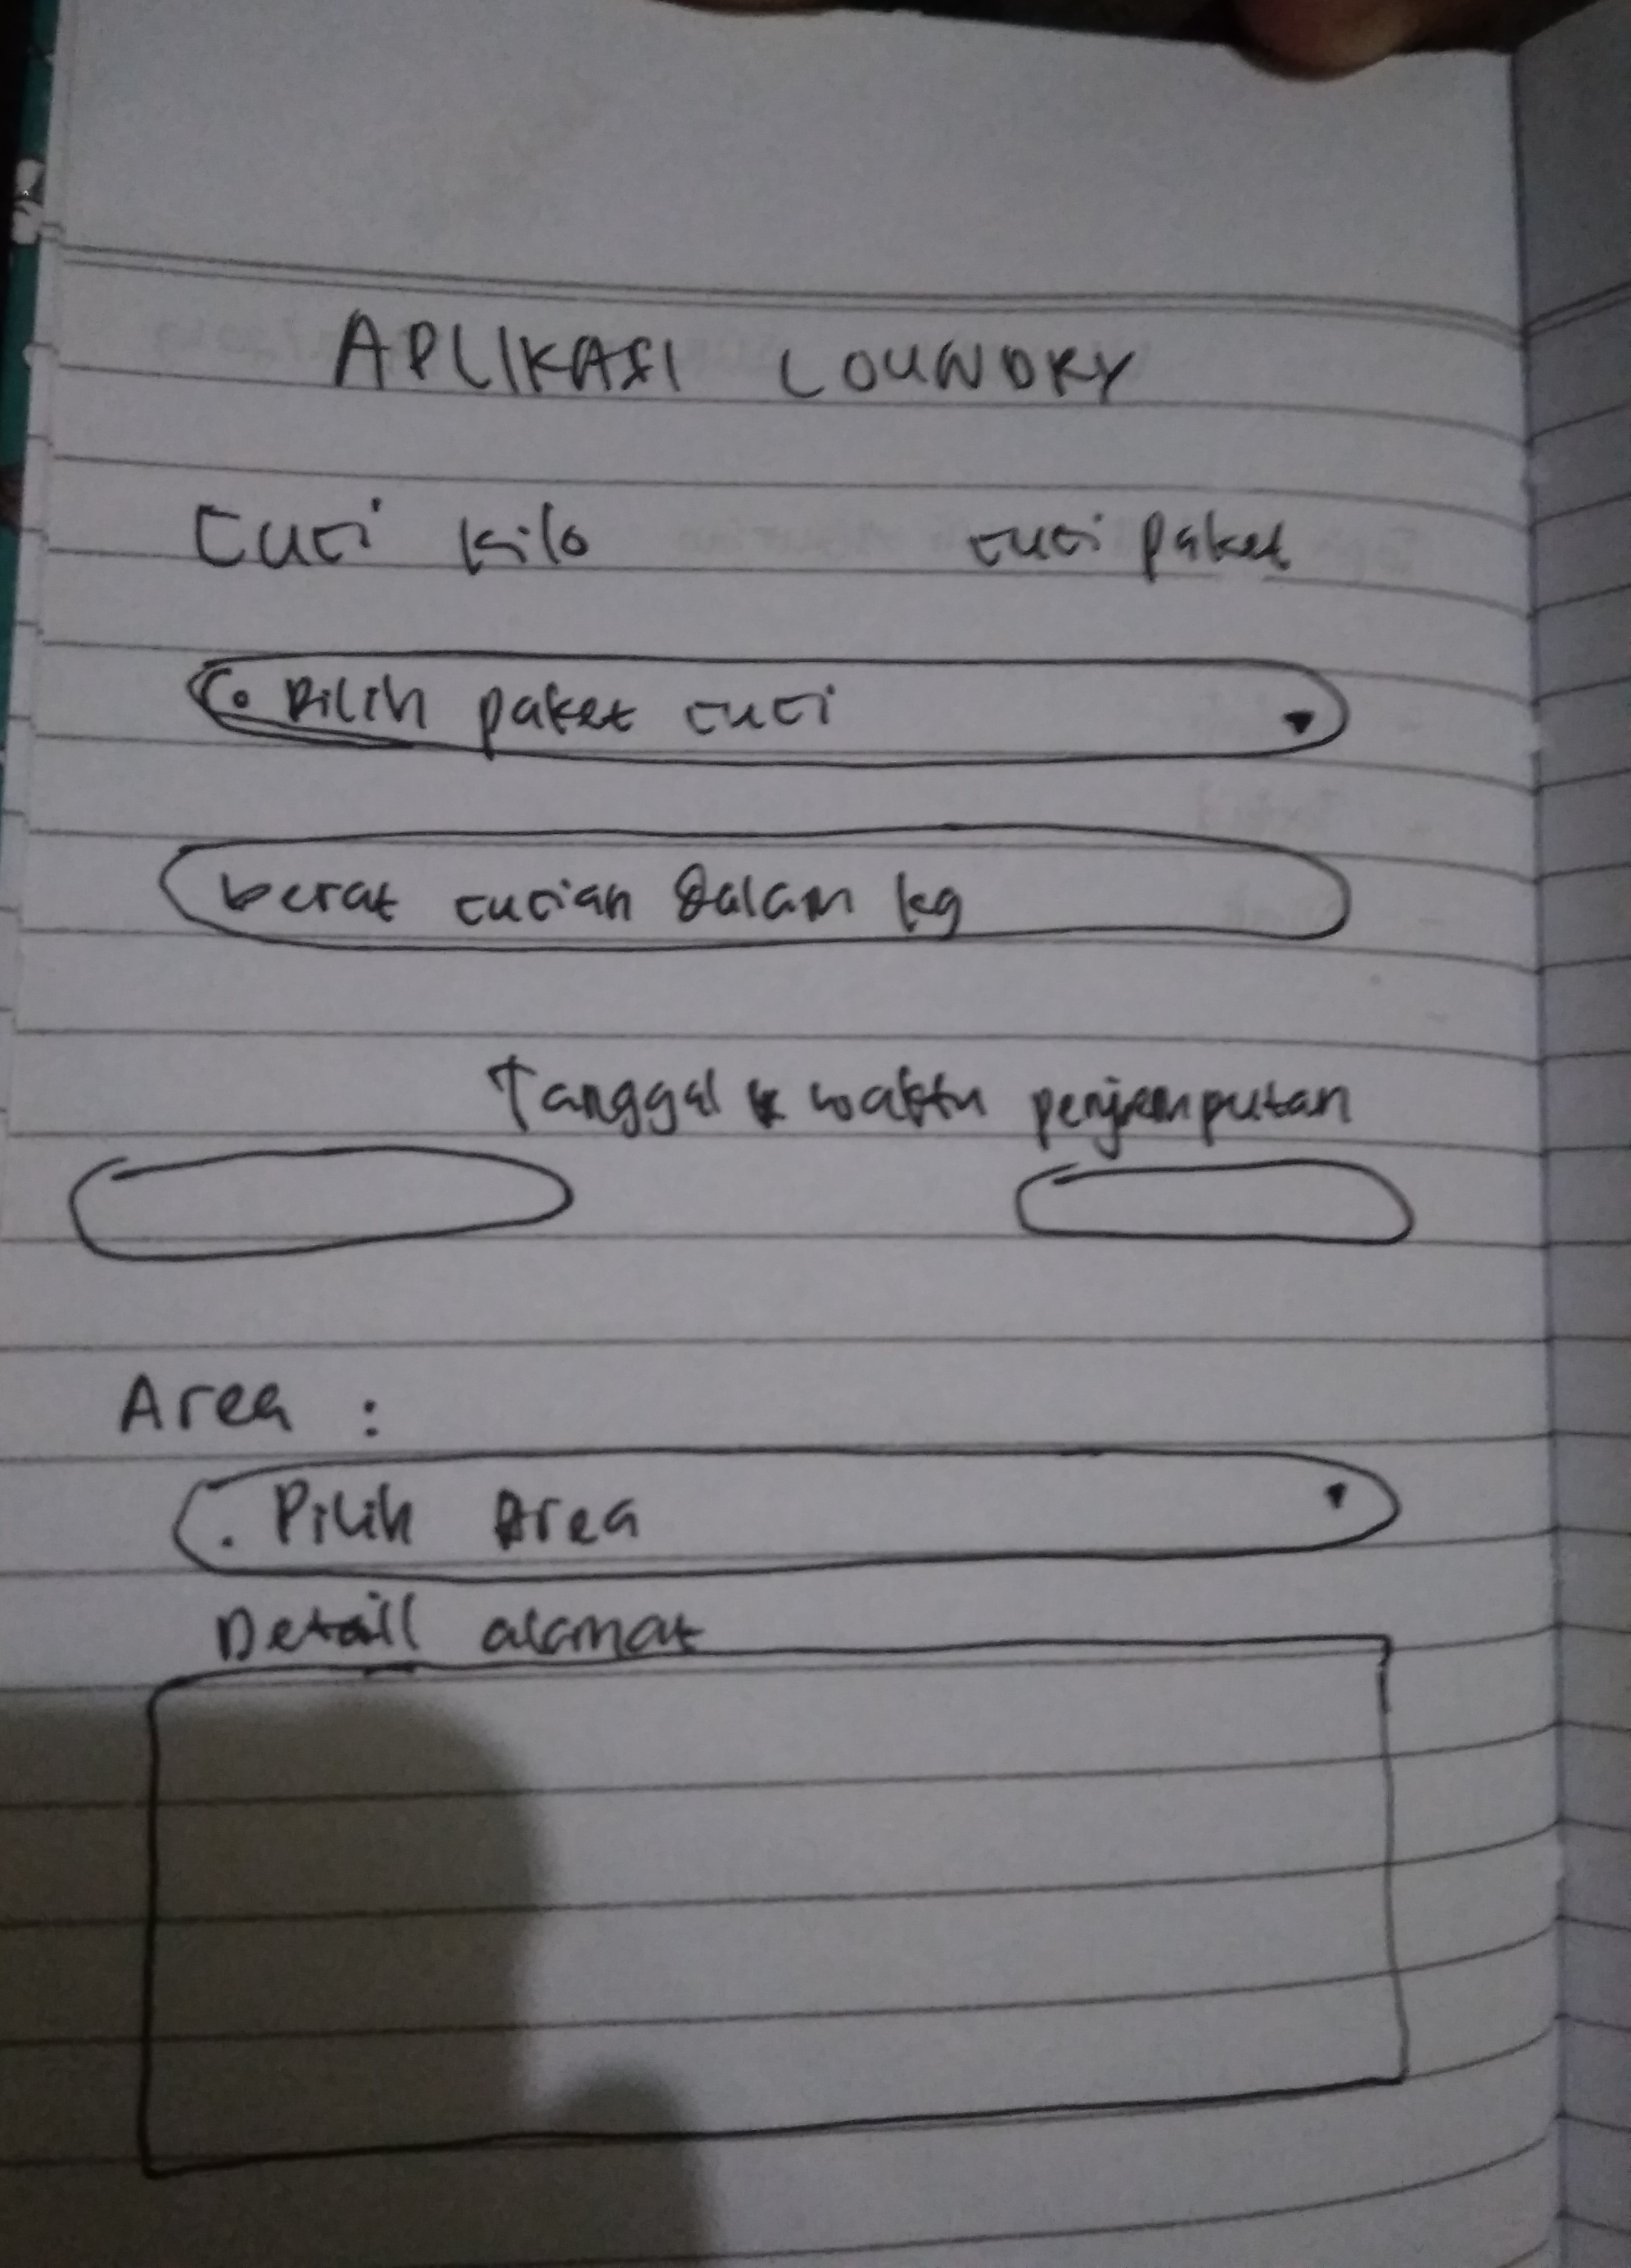 APLIKASI LOUNDRY
Cuci kilo cuci paket
Pilih paket cuci
berat cucian dalam kg
Tanggal & waktu penjemputan
Area :
. Pilih Area
Detaill alamat